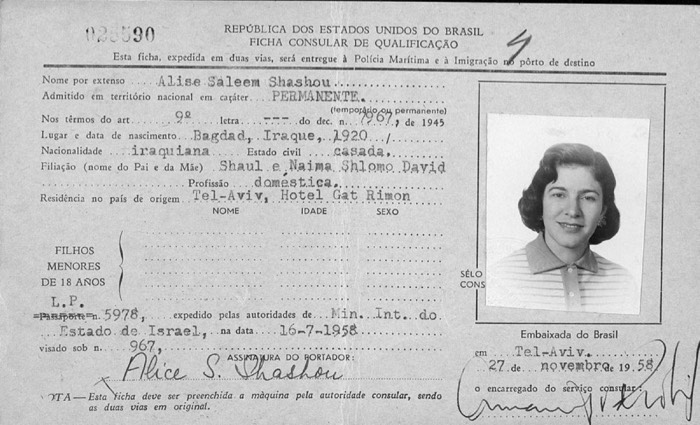 REPÚBLICA DOS ESTADOS UNIDOS DO BRASIL
FICHA CONSULAR DE QUALIFICAÇÃO
Esta ficha, expedida em duas vias, será entregue à Polícia Marítima e à Imigração no pôrto de destino
Nome por extenso Alise Saleem Shashou
Admitido em território nacional em caráter PERMANENTE.
(temporário ou permanente)
Nos têrmos do art 9º letra --- do dec. n. 7967, de 1945
Lugar e data de nascimento Bagdad, Iraque, 1920 /
Nacionalidade iraquiana Estado civil casada.
Filiação (nome do Pai e da Mãe) Shaul e Naima Shlomo David
Profissão doméstica.
Residência no país de origem Tel-Aviv, Hotel Gat Rimon
NOME IDADE SEXO
FILHOS
MENORES
DE 18 ANOS
L.P.
Passaporte n. 5978, expedido pelas autoridades de Min. Int. do
Estado de Israel, na data 16-7-1958
visado sob n. 967,
ASSINATURA DO PORTADOR:
Alice S. Shashou
NOTA — Esta ficha deve ser preenchida a màquina pela autoridade consular, sendo
as duas vias em original.
SÊLO
CONS
Embaixada do Brasil
em Tel-Aviv.
27 de novembro de 1958
o encarregado do serviço consular: